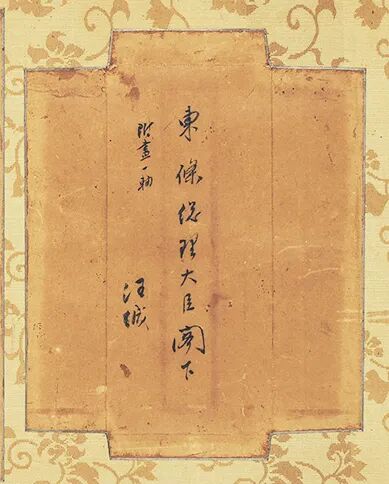 東條総理大臣閣下
附畫一軸
汪緘